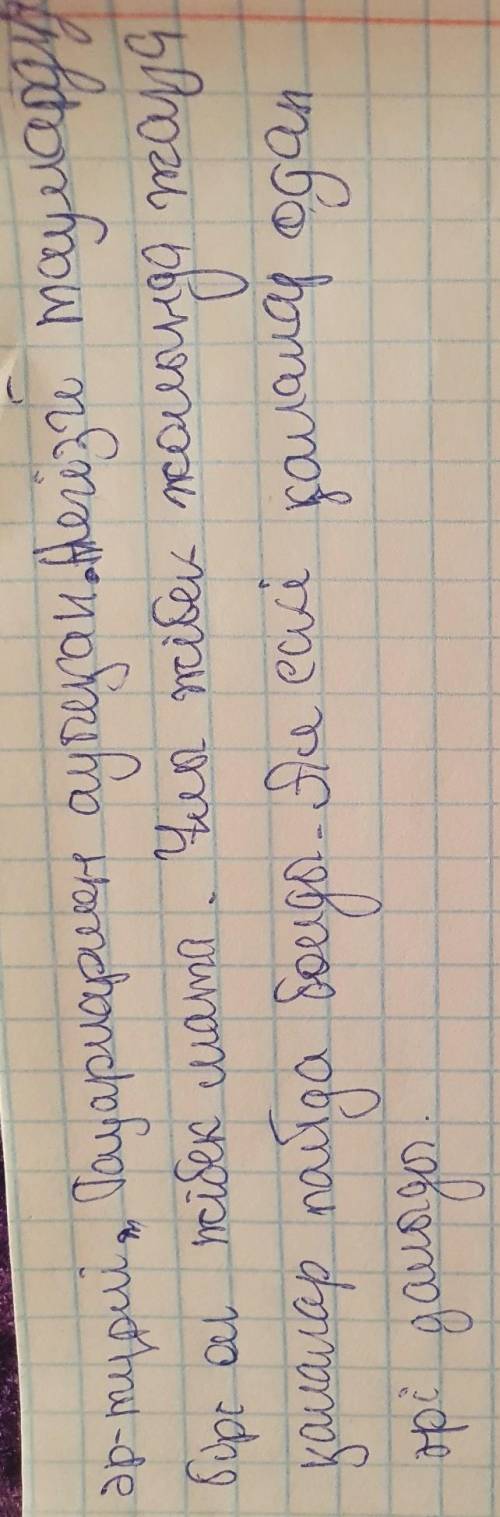 әр-түрлі, Тауарлармен ауысқан. Негізгі таулардың
бірі ол жібек мата. Ұлы жібек жолында жаңа
қалалар пайда болды. Ал ескі қалалар одан
әрі дамыды.